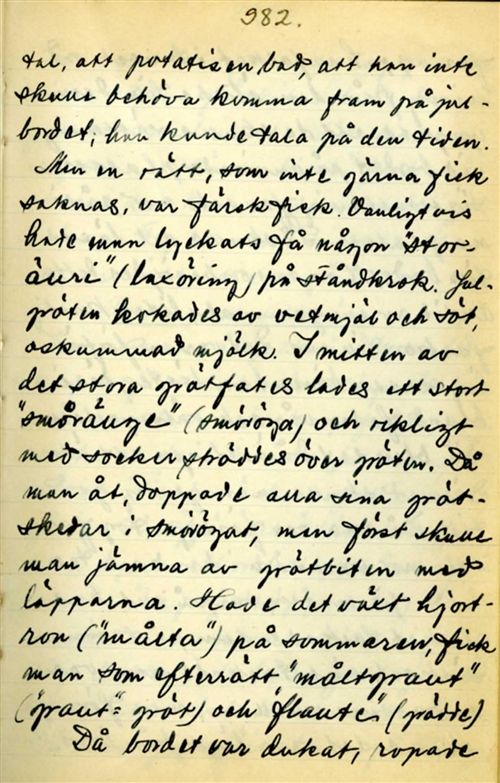 982.
tal, att potatisen bad, att han inte
skulle behöva komma fram på jul-
bordet; han kunde tala på den tiden.
Men en rätt, som inte gärna fick
saknas, var färsk fisk. Vanligtvis
hade man lyckats få någon "stor-
äuri" (laxöring) på ståndkrok. Jul-
gröten kokades av vetmjöl och söt,
oskummad mjölk. I mitten av
det stora grötfatet lades ett stort
"smöräuge" (smöröga) och rikligt
med socker ströddes över gröten. Då
man åt, doppade alla sina gröt-
skedar i smörögat, men först skulle
man jämna av grötbiten med
läpparna. Hade det växt hjort-
ron ("målta") på sommaren, fick
man som efterrätt "måltgraut"
("graut" = gröt) och "flaute" (grädde)
Då bordet var dukat, ropade